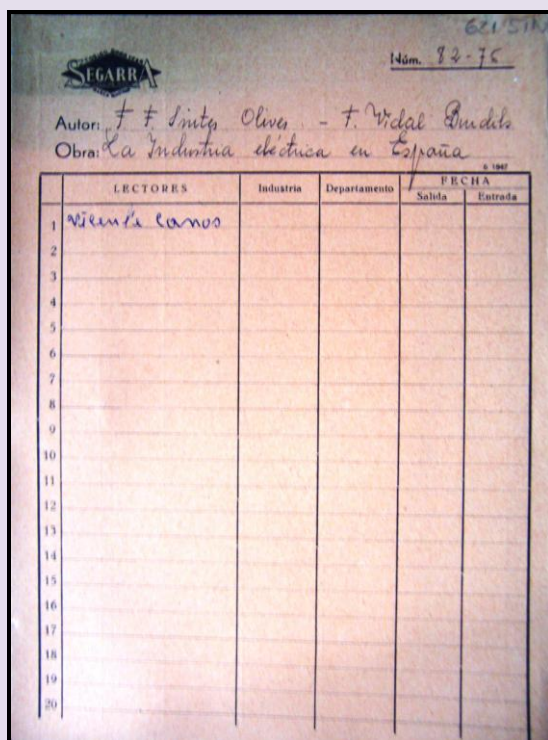 621/SIN
SEGARRA
Núm. 82-76
Autor: F. F. Sintes Olives - F. Vidal Burdils
Obra: La Industria eléctrica en España
6 1947
LECTORES Industria Departamento FECHA
Salida Entrada
1 Vicente Canos
2
3
4
5
6
7
8
9
10
11
12
13
14
15
16
17
18
19
20